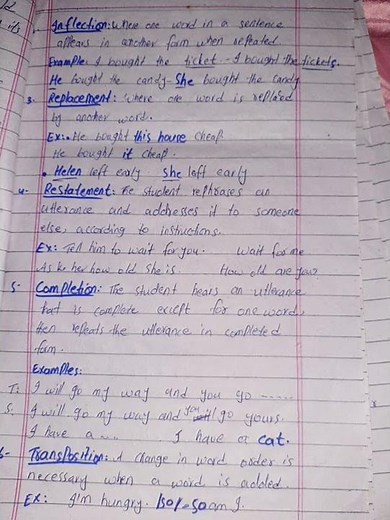 Inflection: Where one word in a sentence
appears in another form when repeated
Example: I bought the ticket - I bought the tickets.
He bought the candy - She bought the candy
3. Replacement: Where one word is replaced
by another word.
Ex:- He bought this house cheap
He bought it cheap.
• Helen left early She left early
4- Restatement: The student rephrases an
utterance and addresses it to someone
else, according to instructions.
Ex: Tell him to wait for you. Wait for me
Ask her how old she is. How old are you?
5- Completion: The student hears an utterance
that is complete except for one word,
then repeats the utterance in completed
form.
Examples:
T: I will go my way and you go ......
S: I will go my way and you will go yours.
I have a .... I have a cat.
6- Transposition: A change in word order is
necessary when a word is added.
EX: I'm hungry. (so). So am I.